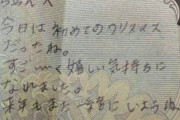 ちゃんへ
今日は初めてのクリスマス
だったね。
すごーく嬉しい気持ちに
なりました。
来年もまた一緒にいようね